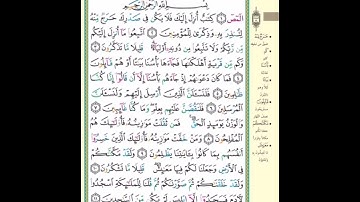 بِسْمِ اللَّهِ الرَّحْمَٰنِ الرَّحِيمِ
الٓمٓصٓ ۝١ كِتَٰبٌ أُنزِلَ إِلَيْكَ فَلَا يَكُن فِى صَدْرِكَ حَرَجٌ مِّنْهُ
لِتُنذِرَ بِهِۦ وَذِكْرَىٰ لِلْمُؤْمِنِينَ ۝٢ ٱتَّبِعُوا۟ مَآ أُنزِلَ إِلَيْكُم
مِّن رَّبِّكُمْ وَلَا تَتَّبِعُوا۟ مِن دُونِهِۦٓ أَوْلِيَآءَ ۗ قَلِيلًا مَّا تَذَكَّرُونَ ۝٣
وَكَم مِّن قَرْيَةٍ أَهْلَكْنَٰهَا فَجَآءَهَا بَأْسُنَا بَيَٰتًا أَوْ هُمْ قَآئِلُونَ
۝٤ فَمَا كَانَ دَعْوَىٰهُمْ إِذْ جَآءَهُم بَأْسُنَآ إِلَّآ أَن قَالُوٓا۟ إِنَّا كُنَّا
ظَٰلِمِينَ ۝٥ فَلَنَسْـَٔلَنَّ ٱلَّذِينَ أُرْسِلَ إِلَيْهِمْ وَلَنَسْـَٔلَنَّ
ٱلْمُرْسَلِينَ ۝٦ فَلَنَقُصَّنَّ عَلَيْهِم بِعِلْمٍ ۖ وَمَا كُنَّا غَآئِبِينَ ۝٧
وَٱلْوَزْنُ يَوْمَئِذٍ ٱلْحَقُّ ۚ فَمَن ثَقُلَتْ مَوَٰزِينُهُۥ فَأُو۟لَٰٓئِكَ هُمُ
ٱلْمُفْلِحُونَ ۝٨ وَمَنْ خَفَّتْ مَوَٰزِينُهُۥ فَأُو۟لَٰٓئِكَ ٱلَّذِينَ خَسِرُوٓا۟
أَنفُسَهُم بِمَا كَانُوا۟ بِـَٔايَٰتِنَا يَظْلِمُونَ ۝٩ وَلَقَدْ مَكَّنَّٰكُمْ
فِى ٱلْأَرْضِ وَجَعَلْنَا لَكُمْ فِيهَا مَعَٰيِشَ ۗ قَلِيلًا مَّا تَشْكُرُونَ ۝١٠
وَلَقَدْ خَلَقْنَٰكُمْ ثُمَّ صَوَّرْنَٰكُمْ ثُمَّ قُلْنَا لِلْمَلَٰٓئِكَةِ ٱسْجُدُوا۟
لِـَٔادَمَ فَسَجَدُوٓا۟ إِلَّآ إِبْلِيسَ لَمْ يَكُن مِّنَ ٱلسَّٰجِدِينَ ۝١١